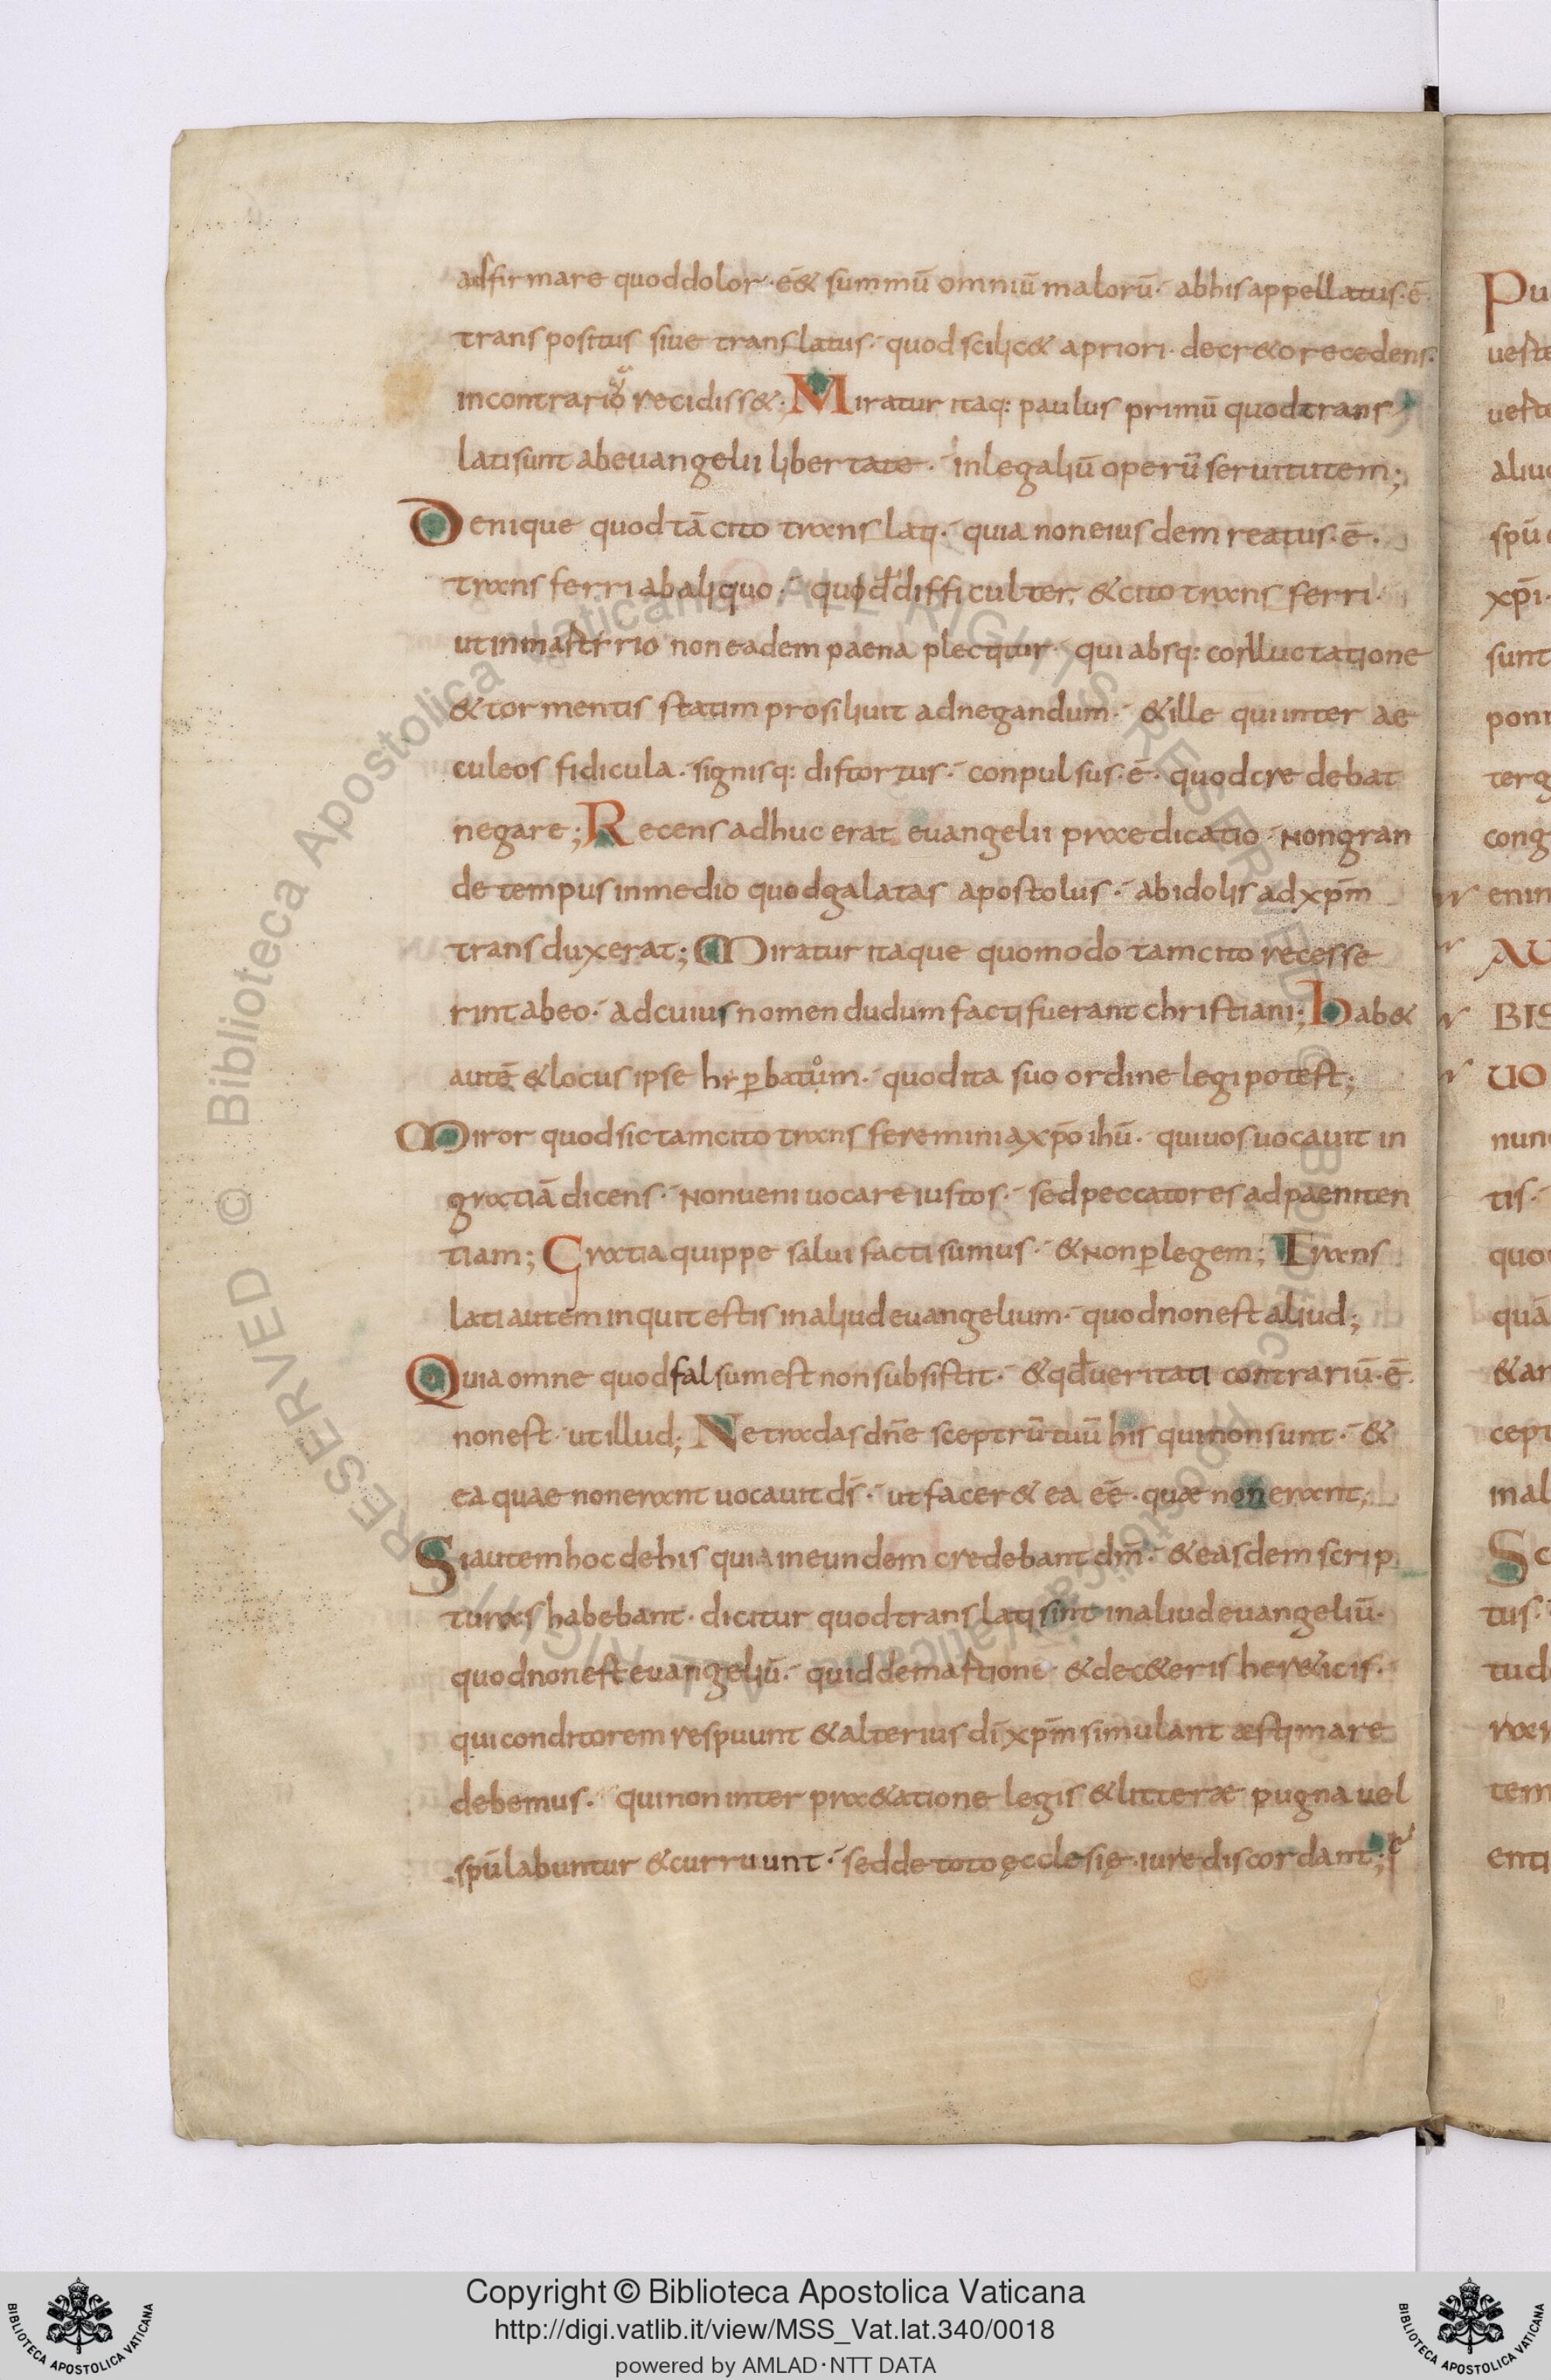 adfirmare quod dolor· ē& summū omniū malorū· ab his appellatus·ē·
trans positus siue translatus· quod scilic& a priori· decr&o recedens·
in contrario recidiss&; Miratur itaq: paulus primū quod trans
lati sunt ab euangelii libertate· in legaliū operū seruitutem;
Denique quod tā cito translati· quia non eiusdem reatus·ē·
trans ferri ab aliquo· quod difficulter, & cito trans ferri·
ut in martyrio non eadem paena plectitur· qui absq: conluctatione
& tormentis statim prosiliuit ad negandum· & ille qui inter ae
culeos fidicula· signisq: distortus· conpulsus·ē· quod credebat
negare; Recens adhuc erat euangelii praedicatio· Non gran
de tempus in medio quod galatas apostolus· ab idolis ad xp̄m
transduxerat; Miratur itaque quomodo tam cito recesse
rint ab eo· ad cuius nomen dudum facti fuerant christiani; hab&
autē & locus ipse hyp̱batum· quod ita suo ordine legi potest;
Miror quod sic tam cito transferemini a xp̄o ihū· qui uos uocauit in
gratiā dicens· Non ueni uocare iustos· sed peccatores ad paeniten
tiam; Gratia quippe salui facti sumus· & Non p̱ legem; Trans
lati autem inquit estis in aliud euangelium· quod non est aliud;
Quia omne quod falsum est non subsistit· & qđ ueritati contrariū·ē·
non est· ut illud; Ne tradas dn̄e sceptrū tuū his qui non sunt· &
ea quae non erant uocauit dś· ut facer& ea eē· quae non erant;
Si autem hoc de his qui in eundem credebant dm̄· & easdem scrip
turas habebant· dicitur quod translati sint in aliud euangeliū·
quod non est euangeliū· quid de martione & de c&eris her&icis·
qui conditorem respuunt & alterius dī xp̄m simulant aestimare
debemus· qui non in interpr&atione legis & litterae pugna uel
spū labuntur & curruunt· sed de toto ęcclesię· iure discordant;
Copyright © Biblioteca Apostolica Vaticana
http://digi.vatlib.it/view/MSS_Vat.lat.340/0018
powered by AMLAD·NTT DATA